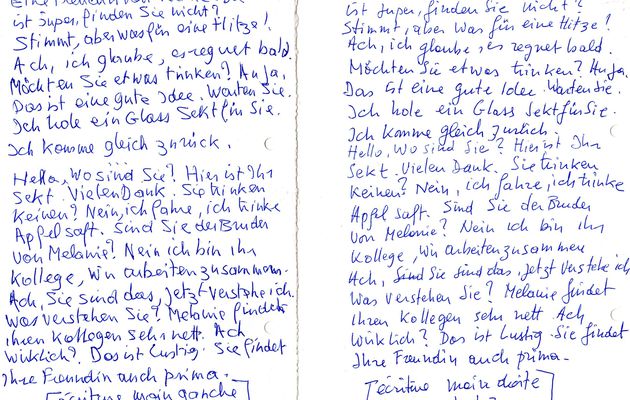 ist super, finden Sie nicht?
Stimmt, aber was für eine Hitze!
Ach, ich glaube, es regnet bald.
Möchten Sie etwas trinken? Au ja.
Das ist eine gute Idee. Warten Sie.
Ich hole ein Glass Sekt für Sie.
Ich komme gleich zurück.
Hello, wo sind Sie? Hier ist Ihr
Sekt. Vielen Dank. Sie trinken
Keinen? Nein, ich fahre, ich trinke
Apfelsaft. Sind Sie der Bruder
von Melanie? Nein ich bin ihr
Kollege, wir arbeiten zusammen.
Ach, Sie sind das, Jetzt verstehe ich.
Was verstehen Sie? Melanie findet
ihren Kollegen sehr nett. Ach
wirklich? Das ist lustig. Sie findet
Ihre Freundin auch prima.
Técriture main gauche
ist super, finden Sie nicht?
Stimmt, aber was für eine Hitze!
Ach, ich glaube, es regnet bald.
Möchten Sie etwas trinken? Au ja.
Das ist eine gute Idee. Warten Sie.
Ich hole ein Glass Sekt für Sie.
Ich komme gleich zurück.
Hello, wo sind Sie? Hier ist Ihr
Sekt. Vielen Dank. Sie trinken
Keinen? Nein, ich fahre, ich trinke
Apfelsaft. Sind Sie der Bruder
von Melanie? Nein ich bin ihr
Kollege, wir arbeiten zusammen
Ach, Sind Sie sind das, Jetzt verstehe ich
Was verstehen Sie? Melanie findet
Ihren Kollegen sehr nett Ach
wirklich? Das ist lustig. Sie findet
Ihre Freundin auch prima.
Técriture main droite